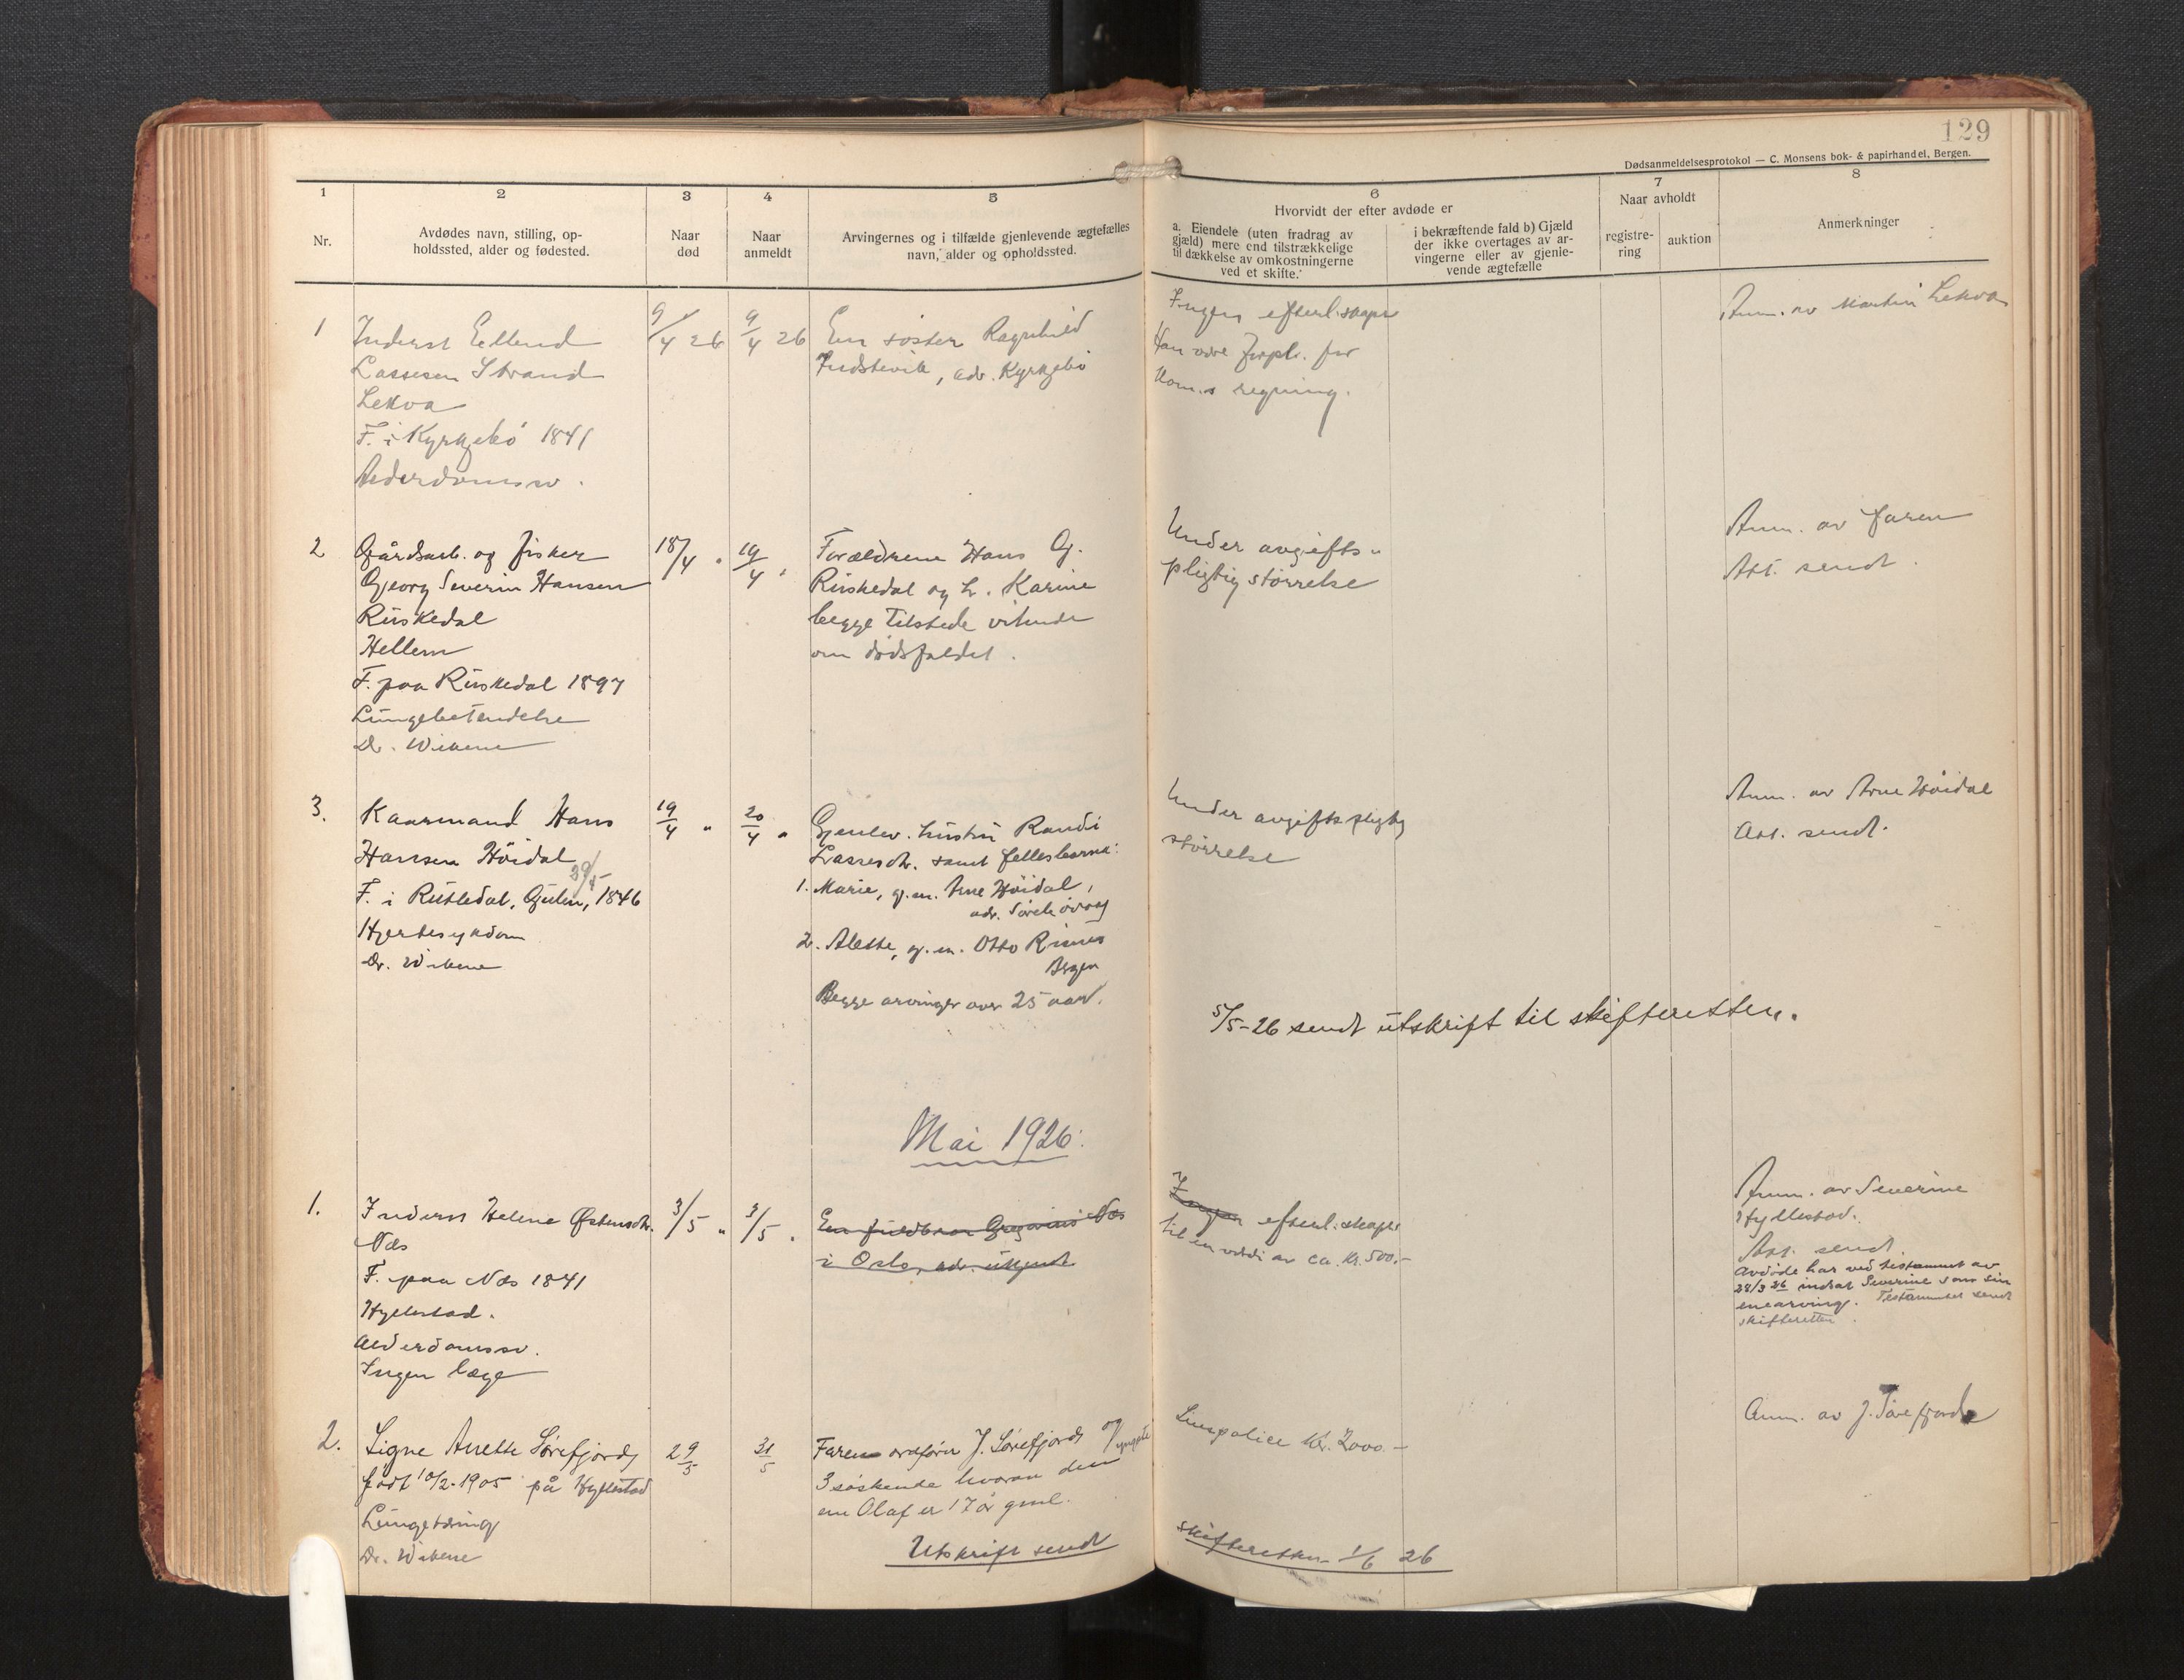 129
Dødsanmeldelsesprotokol — C. Monsens bok- & papirhandel, Bergen.
1
2
3
4
5
6
7
8
Nr.
Avdødes navn, stilling, op-
holdssted, alder og fødested.
Naar
død
Naar
anmeldt
Arvingernes og i tilfælde gjenlevende ægtefælles
navn, alder og opholdssted.
Hvorvidt der efter avdøde er
a. Eiendele (uten fradrag av
gjæld) mere end tilstrækkelige
til dækkelse av omkostningerne
ved et skifte.
i bekræftende fald b) Gjæld
der ikke overtages av ar-
vingerne eller av gjenle-
vende ægtefælle
Naar avholdt
registre-
ring
auktion
Anmerkninger
1
Inderst Ellend
Lassesen Strand
Lekva
F. i Kyrkjebø 1841
Alderdomssv.
9/4 26
9/4 26
En søster Ragnhild
adr. Kyrkjebø
Ingen efterl.skaper
Han være forpl. for
kom.s regning.
Anm. av Martin Lekva
2
Gårdsarb. og fisker
Georg Severin Hansen
Risnedal
Hellem
F. paa Risnedal 1897
Lungebetændelse
Dr. Wikene
18/4 "
19/4 "
Forældrene Hans G.
Risnedal og h. Karine
begge tilstede vitende
om dødsfaldet.
Under avgifts-
pligtig størrelse
Anm. av faren
Att. sendt.
3.
Kaarmand Hans
Hansen Høidal
F. i Rutledal, Gulen, 1846
Hjertesykdom
Dr. Wikene
19/4 "
20/4 "
Gjenlev. hustru Randi
Lassesdtr. samt fellesbarna:
1. Marie, g.m. Arne Høidal,
adr.
2. Alette, g.m. Otto Risnes
Bergen
Begge arvinger over 25 aar.
Under avgiftspligtig
størrelse
Anm. av Arne Høidal
Att. sendt.
5/5-26 sendt utskrift til skifteretten.
Mai 1926:
1.
Inderst Helene Østensdtr.
Næs
F. paa Næs 1841
Hyllestad.
Alderdomssv.
Ingen læge
3/5 "
3/5 "
En fuldbror Gregorius Næs
i Oslo, adr. ukjendt
Ingen efterl.skaper
til en værdi av ca. kr. 500.-
Anm. av Severine
Hyllestad.
Att. sendt.
Avdøde har ved testamnt av
28/3 26 indsat Severine som sin
enearving. Testamentet sendt
skifteretten.
2.
Signe Anette Sørefjord,
født 10/2-1905 på Hyllestad
Lungetæring
Dr. Wikene
29/5
31/5
Faren ordfører J. Sørefjord og
3 søskende hvorav den
ene Olaf er 17 år gml.
Utskrift sendt
skifteretten 1/6 26
Livspolice kr. 2000.-
Anm. av J. Sørefjord